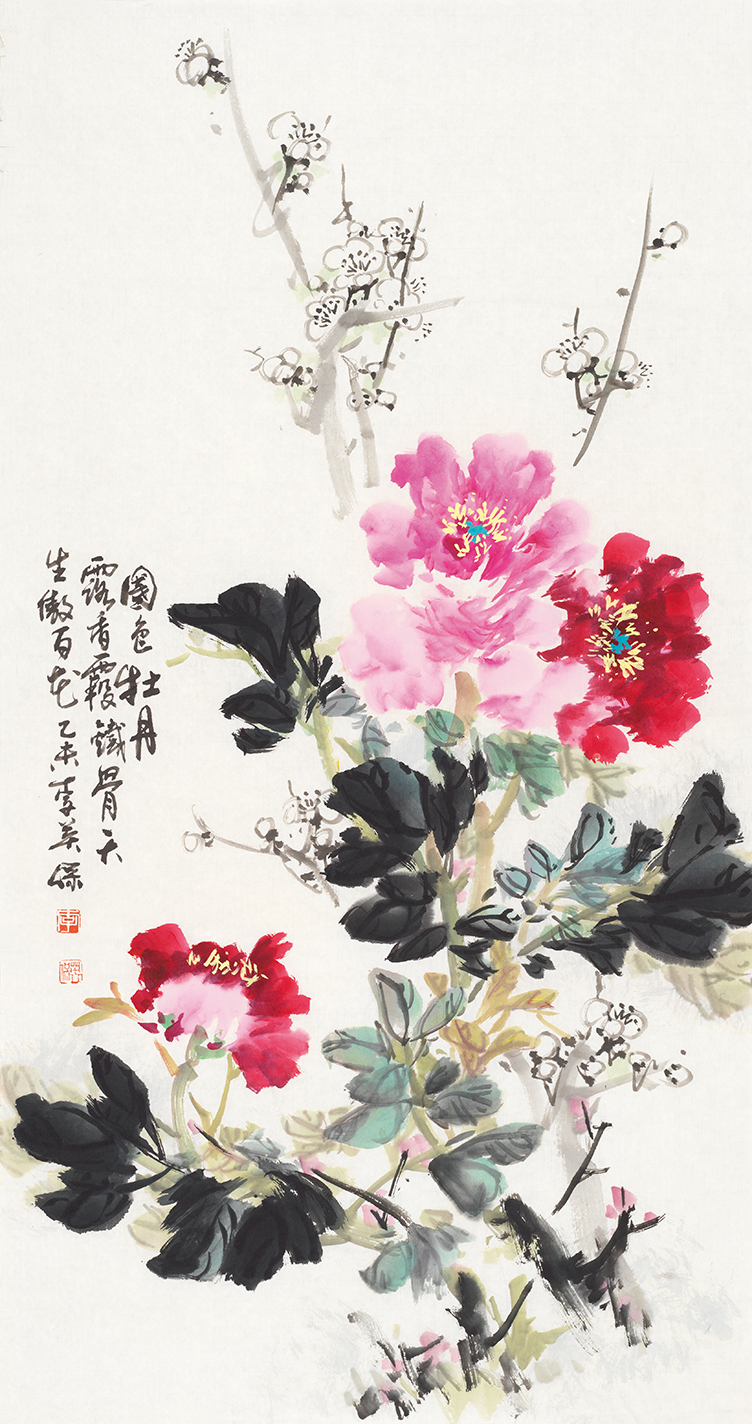 國色牡丹
露香霞鐵骨天
生傲百花乙未李英保